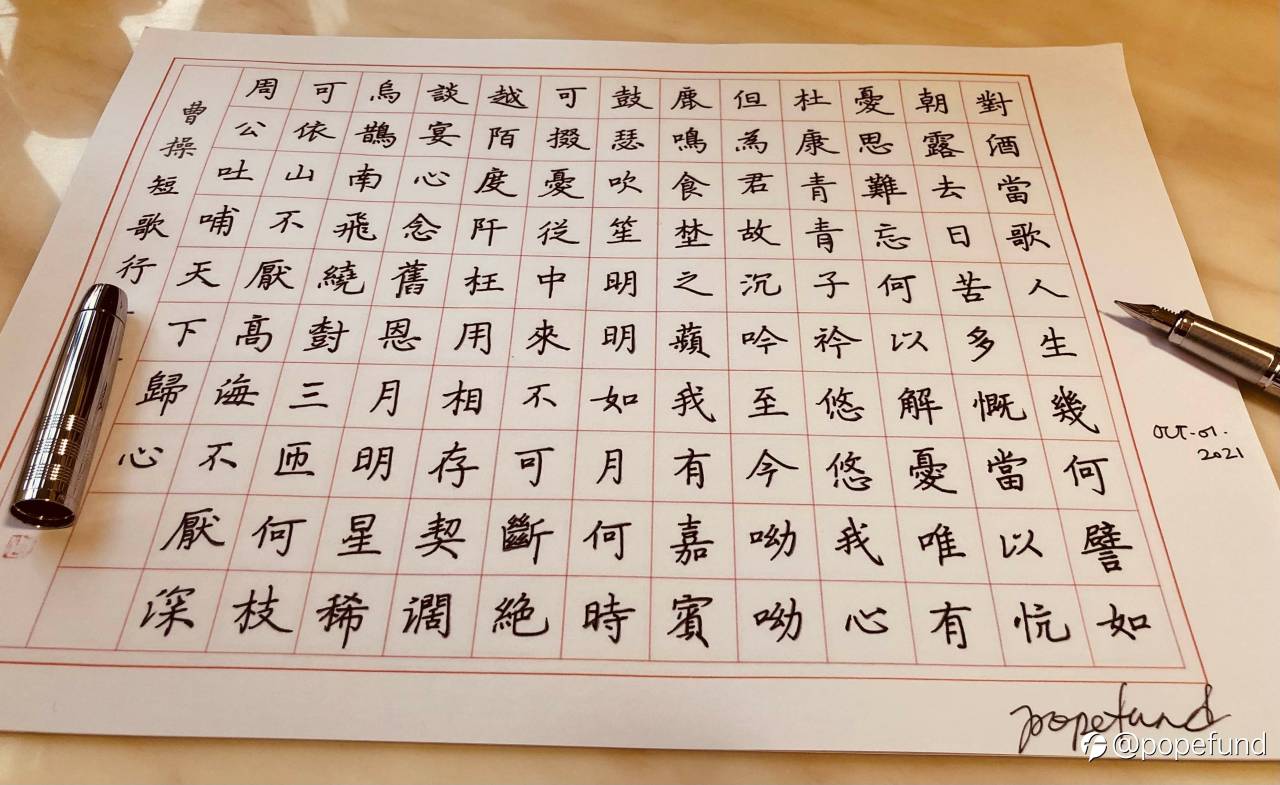 對酒當歌人生幾何譬如
朝露去日苦多慨當以忼
憂思難忘何以解憂唯有
杜康青青子衿悠悠我心
但為君故沉吟至今呦呦
鹿鳴食埜之蘋我有嘉賓
鼓瑟吹笙明明如月何時
可掇憂從中來不可斷絶
越陌度阡枉用相存契濶
談宴心念舊恩月明星稀
烏鵲南飛繞樹三匝何枝
可依山不厭高海不厭深
周公吐哺天下歸心
曹操短歌行
OCT-01-
2021
popefund
@popefund